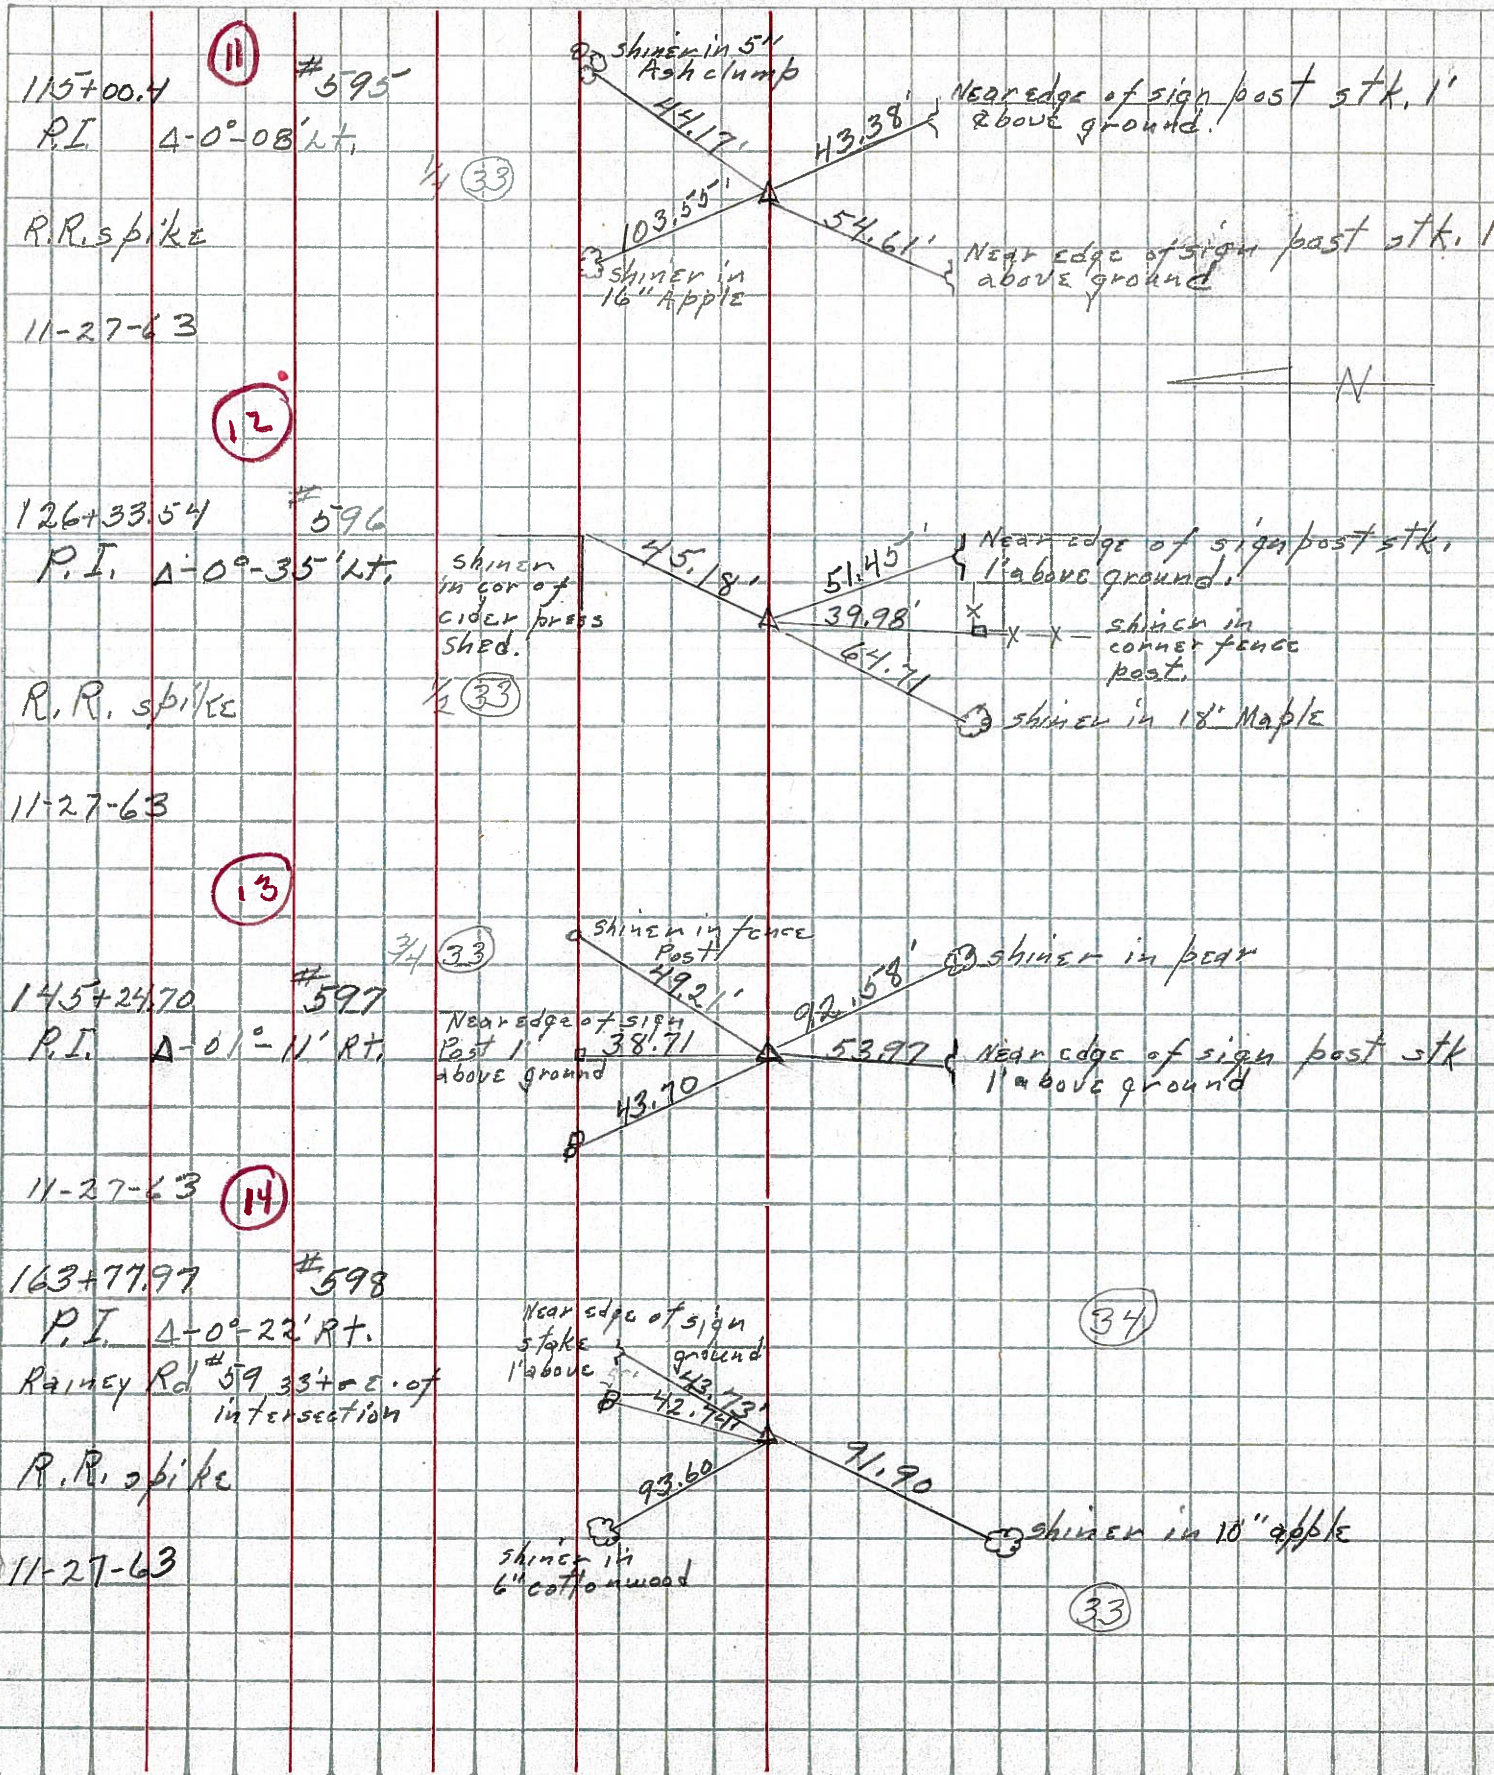 11
115+00.4
#595
P.I. Δ-0°-08' Lt.
1/4 33
R.R. spike
11-27-63
shiner in 5"
Ash clump
44.17'
43.38'
Near edge of sign post stk. 1'
above ground.
103.55'
shiner in
16" Apple
54.61'
Near edge of sign post stk. 1
above ground
N
12
126+33.54
#596
P.I. Δ-0°-35' Lt.
R.R. spike
11-27-63
shiner
in cor of
cider press
shed.
1/2 33
45.18'
51.45'
Near edge of sign post stk.
1' above ground.
39.98'
x
x x
shiner in
corner fence
post.
64.71
shiner in 18" Maple
13
3/4 33
145+24.70
#597
P.I. Δ-01°-11' Rt.
11-27-63
shiner in fence
Post
49.21'
92.58'
shiner in pear
Near edge of sign
Post 1'
above ground
38.71
53.97
Near edge of sign post stk
1' above ground
43.70
14
163+77.97
#598
P.I. Δ-0°-22' Rt.
Rainey Rd #59 33'± E. of
intersection
R.R. spike
11-27-63
Near edge of sign
stake ground
1' above
43.73'
42.74'
93.60
shiner in
6" cottonwood
91.90
shiner in 10" apple
34
33